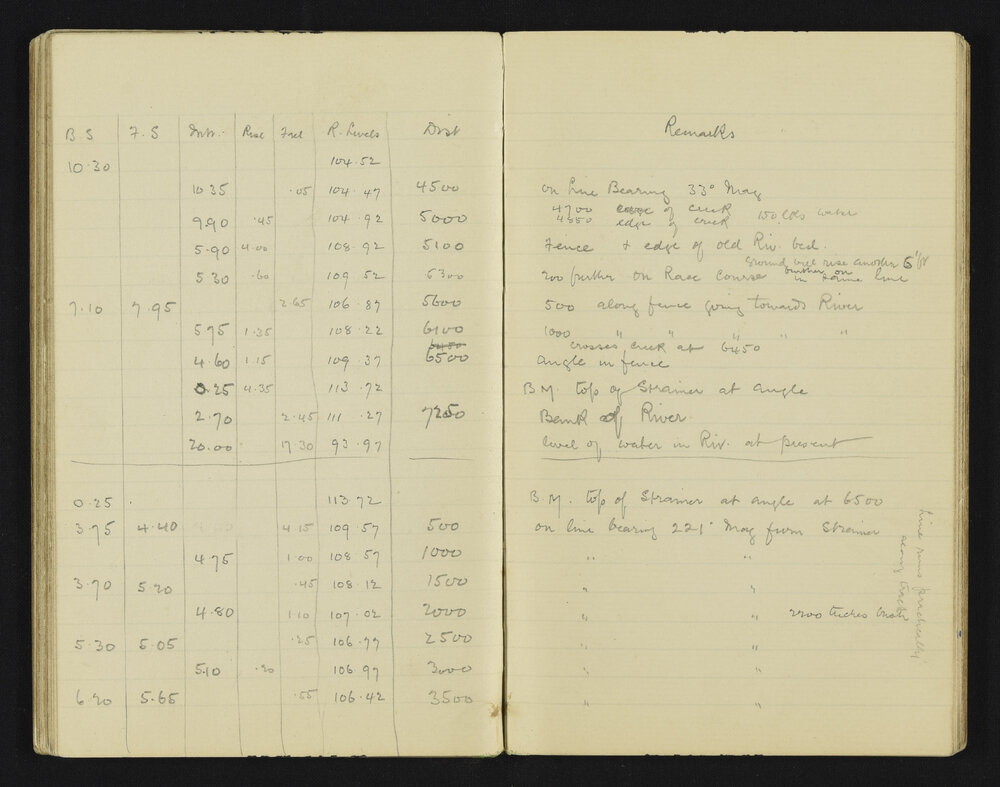 B S F. S Inte. Rise Fall R. Levels Dist Remarks
10.30 104.52
10.35 .05 104.47 4500 on line Bearing 33° Mag
4700 edge of creek 150 lks water
9.90 .45 104.92 5000 4850 edge of creek
5.90 4.00 108.92 5100 Fence & edge of old Riv. bed.
Ground will rise another 5 or
5.30 .60 109.52 5300 200 further on Race Course further on in same line
7.10 7.95 2.65 106.87 5600 500 along fence going towards River
5.75 1.35 108.22 6100 1000 " " " " "
6450 crosses creek at 6450
4.60 1.15 109.37 6500 Angle in fence
0.25 4.35 113.72 B M. top of Strainer at angle
2.70 2.45 111.27 7250 Bank of River
20.00 17.30 93.97 level of water in Riv. at present
0.25 . 113.72 B M. top of Strainer at angle at 6500
3.75 4.40 4.15 109.57 500 on line bearing 221° Mag from Strainer
4.75 1.00 108.57 1000 " "
3.70 5.20 .45 108.12 1500 " "
4.80 1.10 107.02 2000 " " 2200
5.30 5.05 .25 106.77 2500 " "
5.10 .20 106.97 3000 " "
6.20 5.65 .55 106.42 3500 " "
Line runs practically
along track